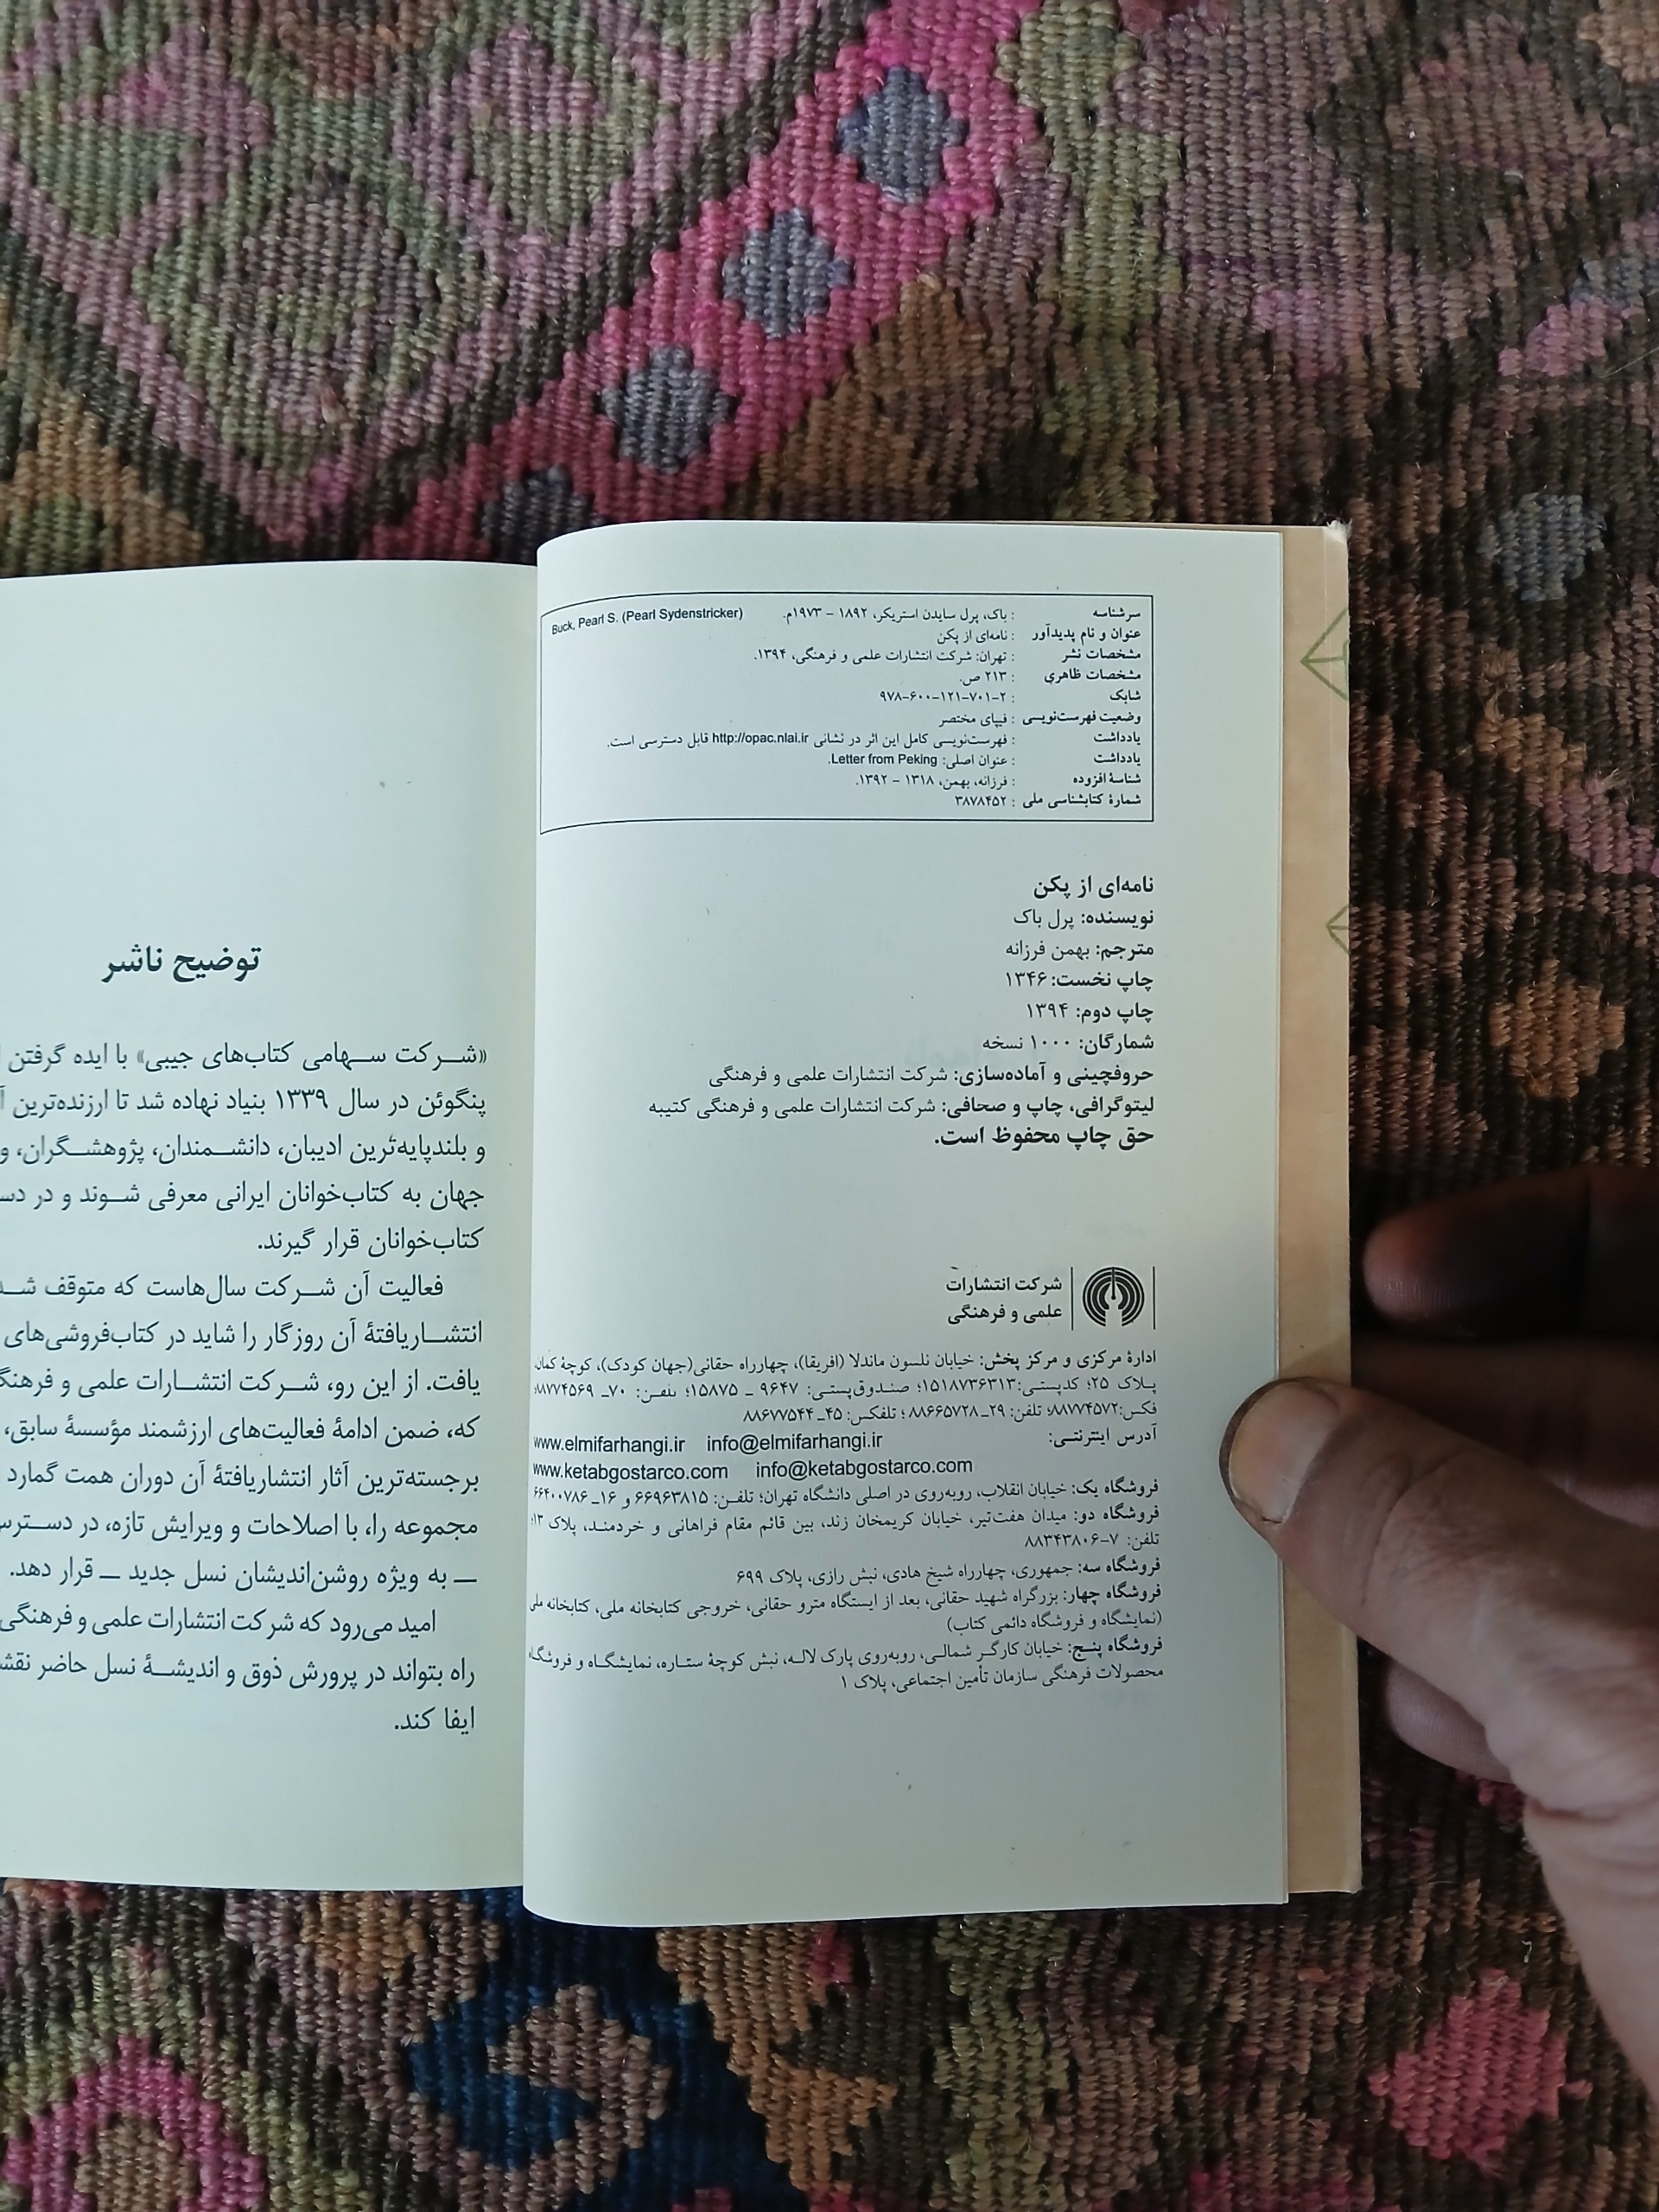 سرشناسه : باک، پرل سایدن استریکر، ۱۸۹۲ – ۱۹۷۳م. Buck, Pearl S. (Pearl Sydenstricker)
عنوان و نام پدیدآور : نامه‌ای از پکن
مشخصات نشر : تهران: شرکت انتشارات علمی و فرهنگی، ۱۳۹۴.
مشخصات ظاهری : ۲۱۳ ص.
شابک : ۹۷۸-۶۰۰-۱۲۱-۷۰۱-۲
وضعیت فهرست‌نویسی : فیپای مختصر
یادداشت : فهرست‌نویسی کامل این اثر در نشانی http://opac.nlai.ir قابل دسترسی است.
یادداشت : عنوان اصلی: Letter from Peking.
شناسهٔ افزوده : فرزانه، بهمن، ۱۳۱۸ – ۱۳۹۲.
شمارهٔ کتابشناسی ملی : ۳۸۷۸۴۵۲
نامه‌ای از پکن
نویسنده: پرل باک
مترجم: بهمن فرزانه
چاپ نخست: ۱۳۴۶
چاپ دوم: ۱۳۹۴
شمارگان: ۱۰۰۰ نسخه
حروفچینی و آماده‌سازی: شرکت انتشارات علمی و فرهنگی
لیتوگرافی، چاپ و صحافی: شرکت انتشارات علمی و فرهنگی کتیبه
حق چاپ محفوظ است.
شرکت انتشارات
علمی و فرهنگی
ادارهٔ مرکزی و مرکز پخش: خیابان نلسون ماندلا (افریقا)، چهارراه حقانی(جهان کودک)، کوچهٔ کمان،
پلاک ۲۵؛ کدپستی:۱۵۱۸۷۳۶۳۱۳؛ صندوق‌پستی: ۹۶۴۷ ـ ۱۵۸۷۵؛ تلفن: ۷۰ـ ۸۸۷۷۴۵۶۹؛
فکس:۸۸۷۷۴۵۷۲؛ تلفن: ۲۹ـ ۸۸۶۶۵۷۲۸ ؛ تلفکس: ۴۵ـ ۸۸۶۷۷۵۴۴
آدرس اینترنتی: info@elmifarhangi.ir www.elmifarhangi.ir
info@ketabgostarco.com www.ketabgostarco.com
فروشگاه یک: خیابان انقلاب، روبه‌روی در اصلی دانشگاه تهران؛ تلفن: ۶۶۹۶۳۸۱۵ و ۱۶ـ ۶۶۴۰۰۷۸۶
فروشگاه دو: میدان هفت‌تیر، خیابان کریمخان زند، بین قائم مقام فراهانی و خردمند، پلاک ۱۳؛
تلفن: ۷-۸۸۳۴۳۸۰۶
فروشگاه سه: جمهوری، چهارراه شیخ هادی، نبش رازی، پلاک ۶۹۹
فروشگاه چهار: بزرگراه شهید حقانی، بعد از ایستگاه مترو حقانی، خروجی کتابخانه ملی، کتابخانه ملی
(نمایشگاه و فروشگاه دائمی کتاب)
فروشگاه پنج: خیابان کارگر شمالی، روبه‌روی پارک لاله، نبش کوچهٔ ستاره، نمایشگاه و فروشگاه
محصولات فرهنگی سازمان تأمین اجتماعی، پلاک ۱
توضیح ناشر
«شرکت سهامی کتاب‌های جیبی» با ایده گرفتن
پنگوئن در سال ۱۳۳۹ بنیاد نهاده شد تا ارزنده‌ترین
و بلندپایه‌ترین ادیبان، دانشمندان، پژوهشگران، و
جهان به کتاب‌خوانان ایرانی معرفی شوند و در
کتاب‌خوانان قرار گیرند.
فعالیت آن شرکت سال‌هاست که متوقف
انتشاریافتهٔ آن روزگار را شاید در کتاب‌فروشی‌های
یافت. از این رو، شرکت انتشارات علمی و
که، ضمن ادامهٔ فعالیت‌های ارزشمند مؤسسهٔ سابق،
برجسته‌ترین آثار انتشاریافتهٔ آن دوران همت گمارد
مجموعه را، با اصلاحات و ویرایش تازه، در
ـــ به ویژه روشن‌اندیشان نسل جدید ـــ قرار دهد.
امید می‌رود که شرکت انتشارات علمی و فرهنگی
راه بتواند در پرورش ذوق و اندیشهٔ نسل حاضر
ایفا کند.